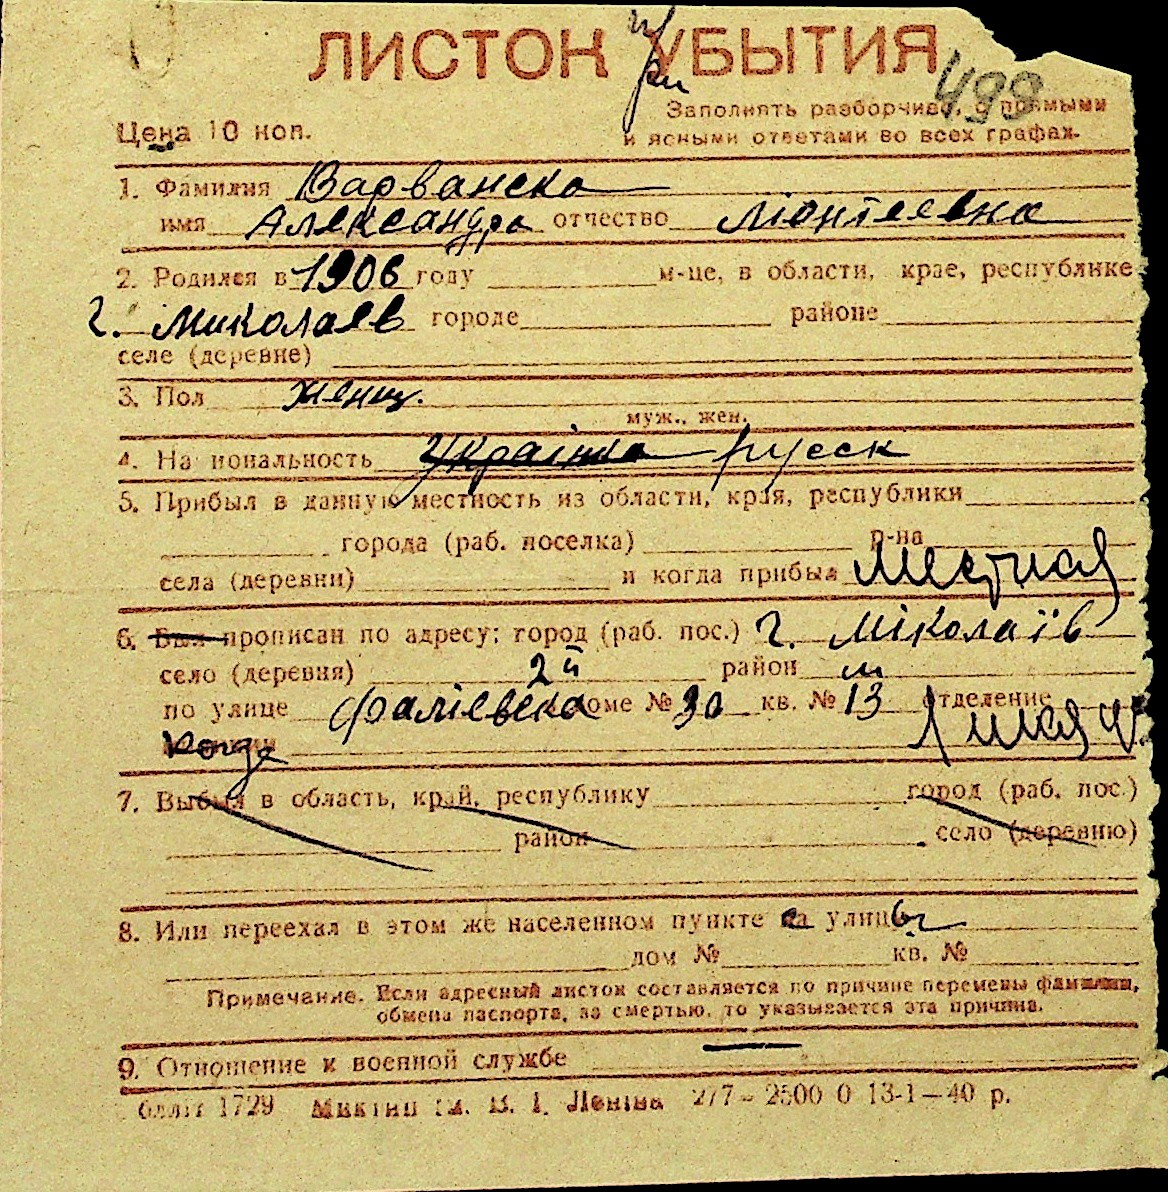 ЛИСТОК УБЫТИЯ
при
499
Заполнять разборчиво, с прямыми
Цена 10 коп.
и ясными ответами во всех графах.
1. Фамилия Варванска
имя Александра отчество Ліонтеевна
2. Родился в 1906 году м-це, в области, крае, республике
г. Миколаев городе районе
селе (деревне)
3. Пол женщ.
муж., жен.
4. Национальность Українка русск
5. Прибыл в данную местность из области, края, республики
города (раб. поселка) р-на
села (деревни) и когда прибыл Местная
6. Был прописан по адресу: город (раб. пос.) г. Міколаїв
село (деревня) 2й район м
по улице Фаліевска доме № 30 кв. № 13 отделение
когда 1 мая
7. Выбыл в область, край, республику город (раб. пос.)
район село (деревню)
8. Или переехал в этом же населенном пункте са улицы
дом № кв. №
Примечание. Если адресный листок составляется по причине перемены фамилии,
обмена паспорта, за смертью, то указывается эта причина.
9. Отношение к военной службе —
1729 ім. В. І. Леніна 277 – 2500 0 13-1—40 р.